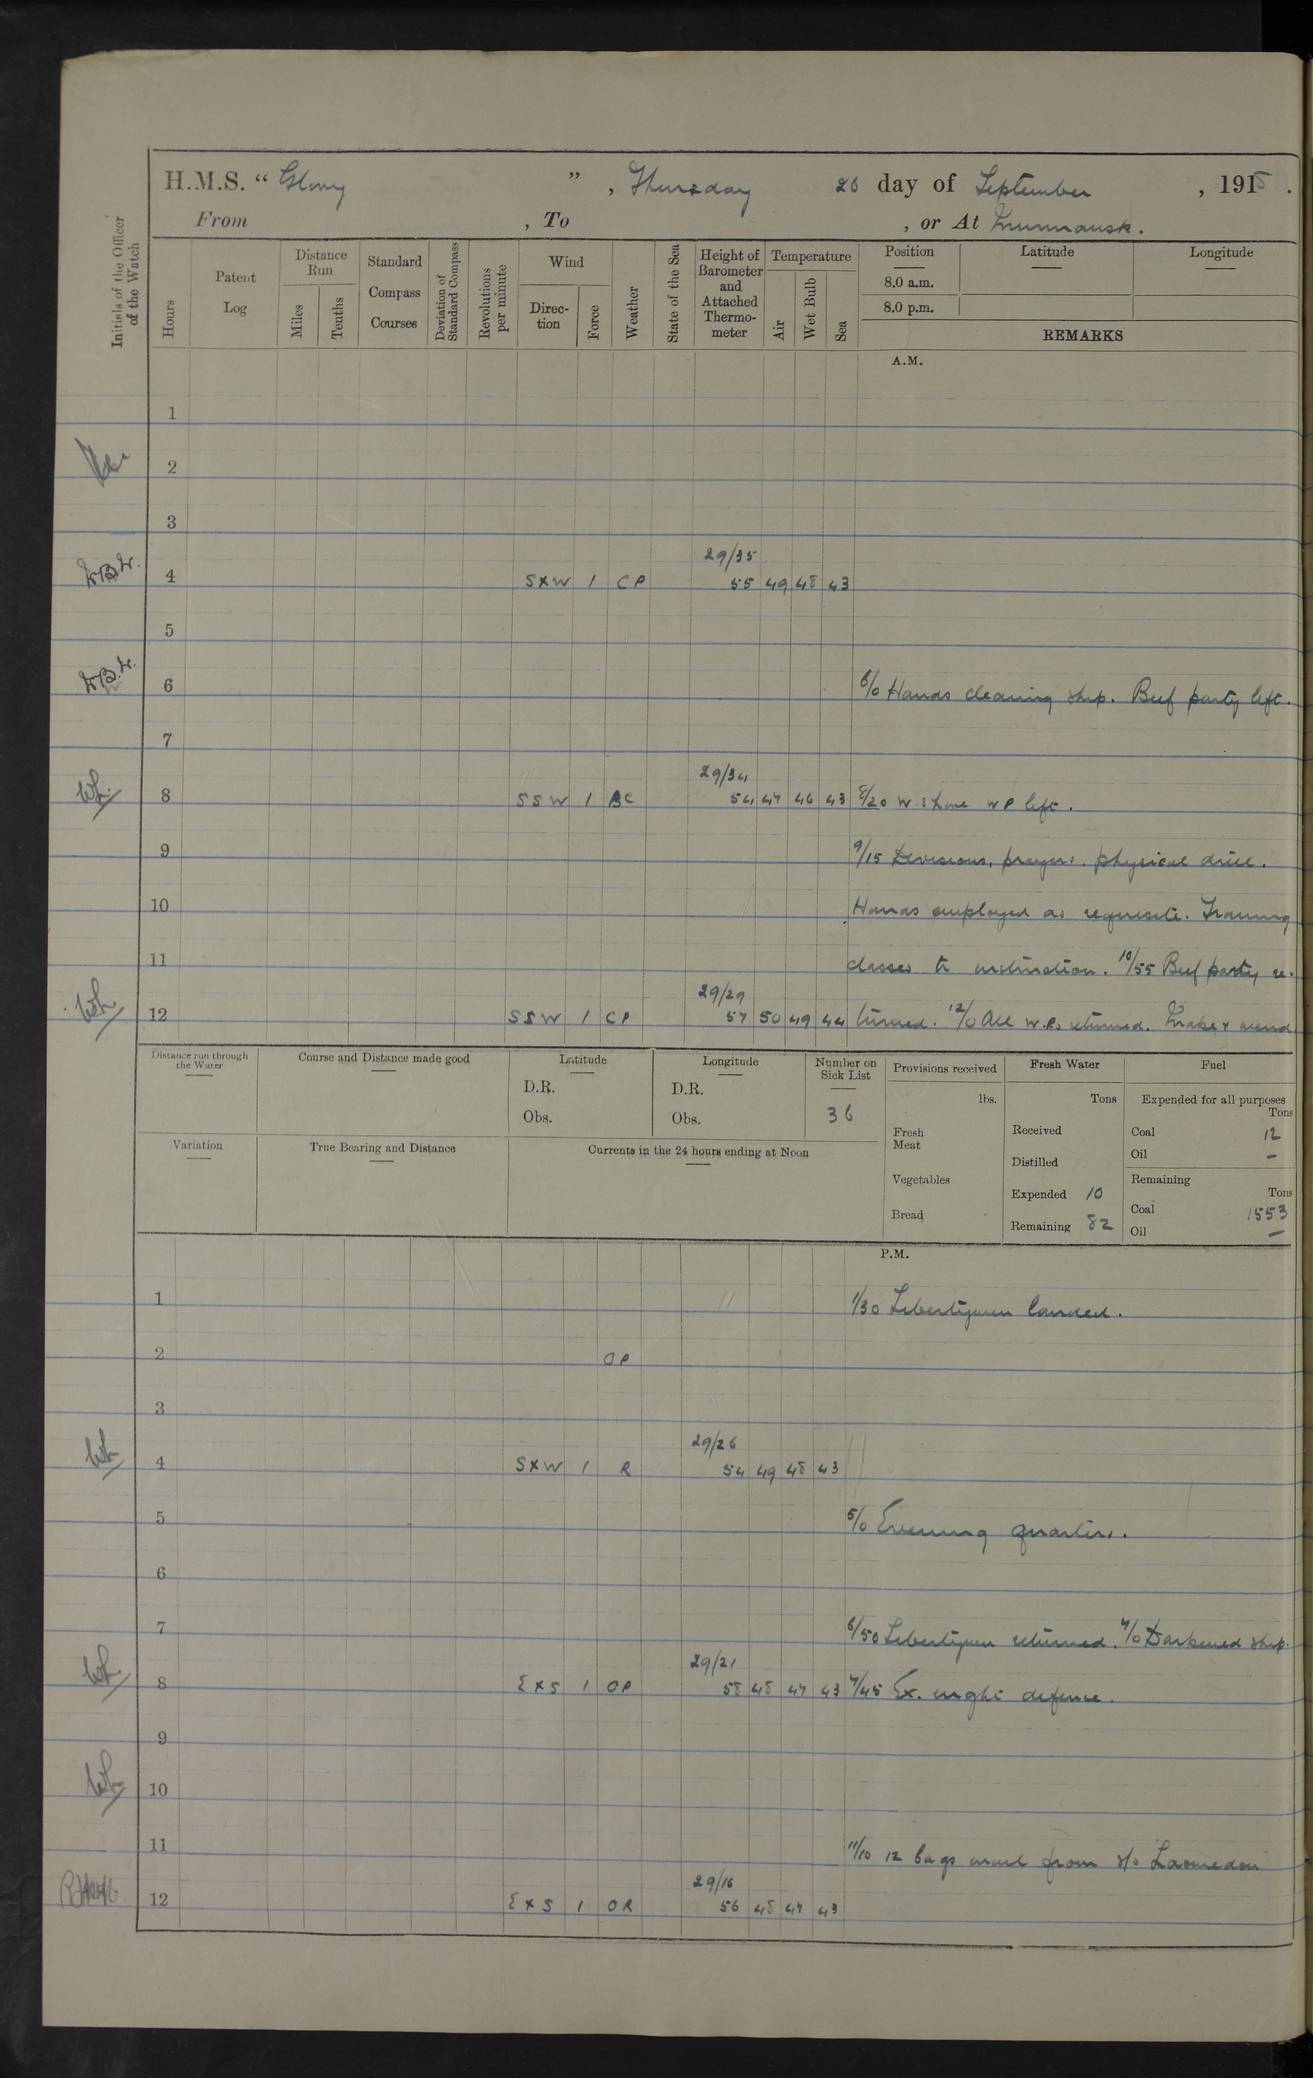 H.M.S. “ Glory ” , Thursday 26 day of September , 1918 .
From , To , or At Murmansk.
Initials of the Officer of the Watch
Hours
Patent Log
Distance Run
Miles
Tenths
Standard Compass Courses
Deviation of Standard Compass
Revolutions per minute
Wind
Direction
Force
Weather
State of the Sea
Height of Barometer and Attached Thermometer
Temperature
Air
Wet Bulb
Sea
Position
8.0 a.m.
8.0 p.m.
Latitude
Longitude
REMARKS
A.M.
1
2
3
29/35
4 SxW 1 CP 55 49 48 43
5
6 6/0 Hands cleaning ship. Beef party left.
7
29/34
8 SSW 1 BC 54 47 46 43 8/20 W shore WP left.
9 9/15 Divisions, prayers. physical drill.
10 Hands employed as requisite. Training
11 classes to instruction. 10/55 Beef party re-
29/29
12 SSW 1 CP 57 50 49 44 turned. 12/0 All W.Ps returned. Make & mend
Distance run through the Water
Course and Distance made good
Latitude
D.R.
Obs.
Longitude
D.R.
Obs.
Number on Sick List
36
Variation
True Bearing and Distance
Currents in the 24 hours ending at Noon
Provisions received
lbs.
Fresh Meat
Vegetables
Bread
Fresh Water
Tons
Received
Distilled
Expended 10
Remaining 82
Fuel
Expended for all purposes
Tons
Coal 12
Oil –
Remaining
Tons
Coal 1553
Oil –
P.M.
1 1/30 Libertymen landed.
2 OP
3
29/26
4 SxW 1 R 54 49 48 43
5 5/0 Evening quarters.
6
7 6/50 Libertymen returned. 7/0 Darkened ship.
29/21
8 ExS 1 OP 58 48 47 43 7/45 Ex. night defence.
9
10
11 11/10 12 bags mail from s/s Laomedon
29/16
12 ExS 1 OR 56 48 47 43